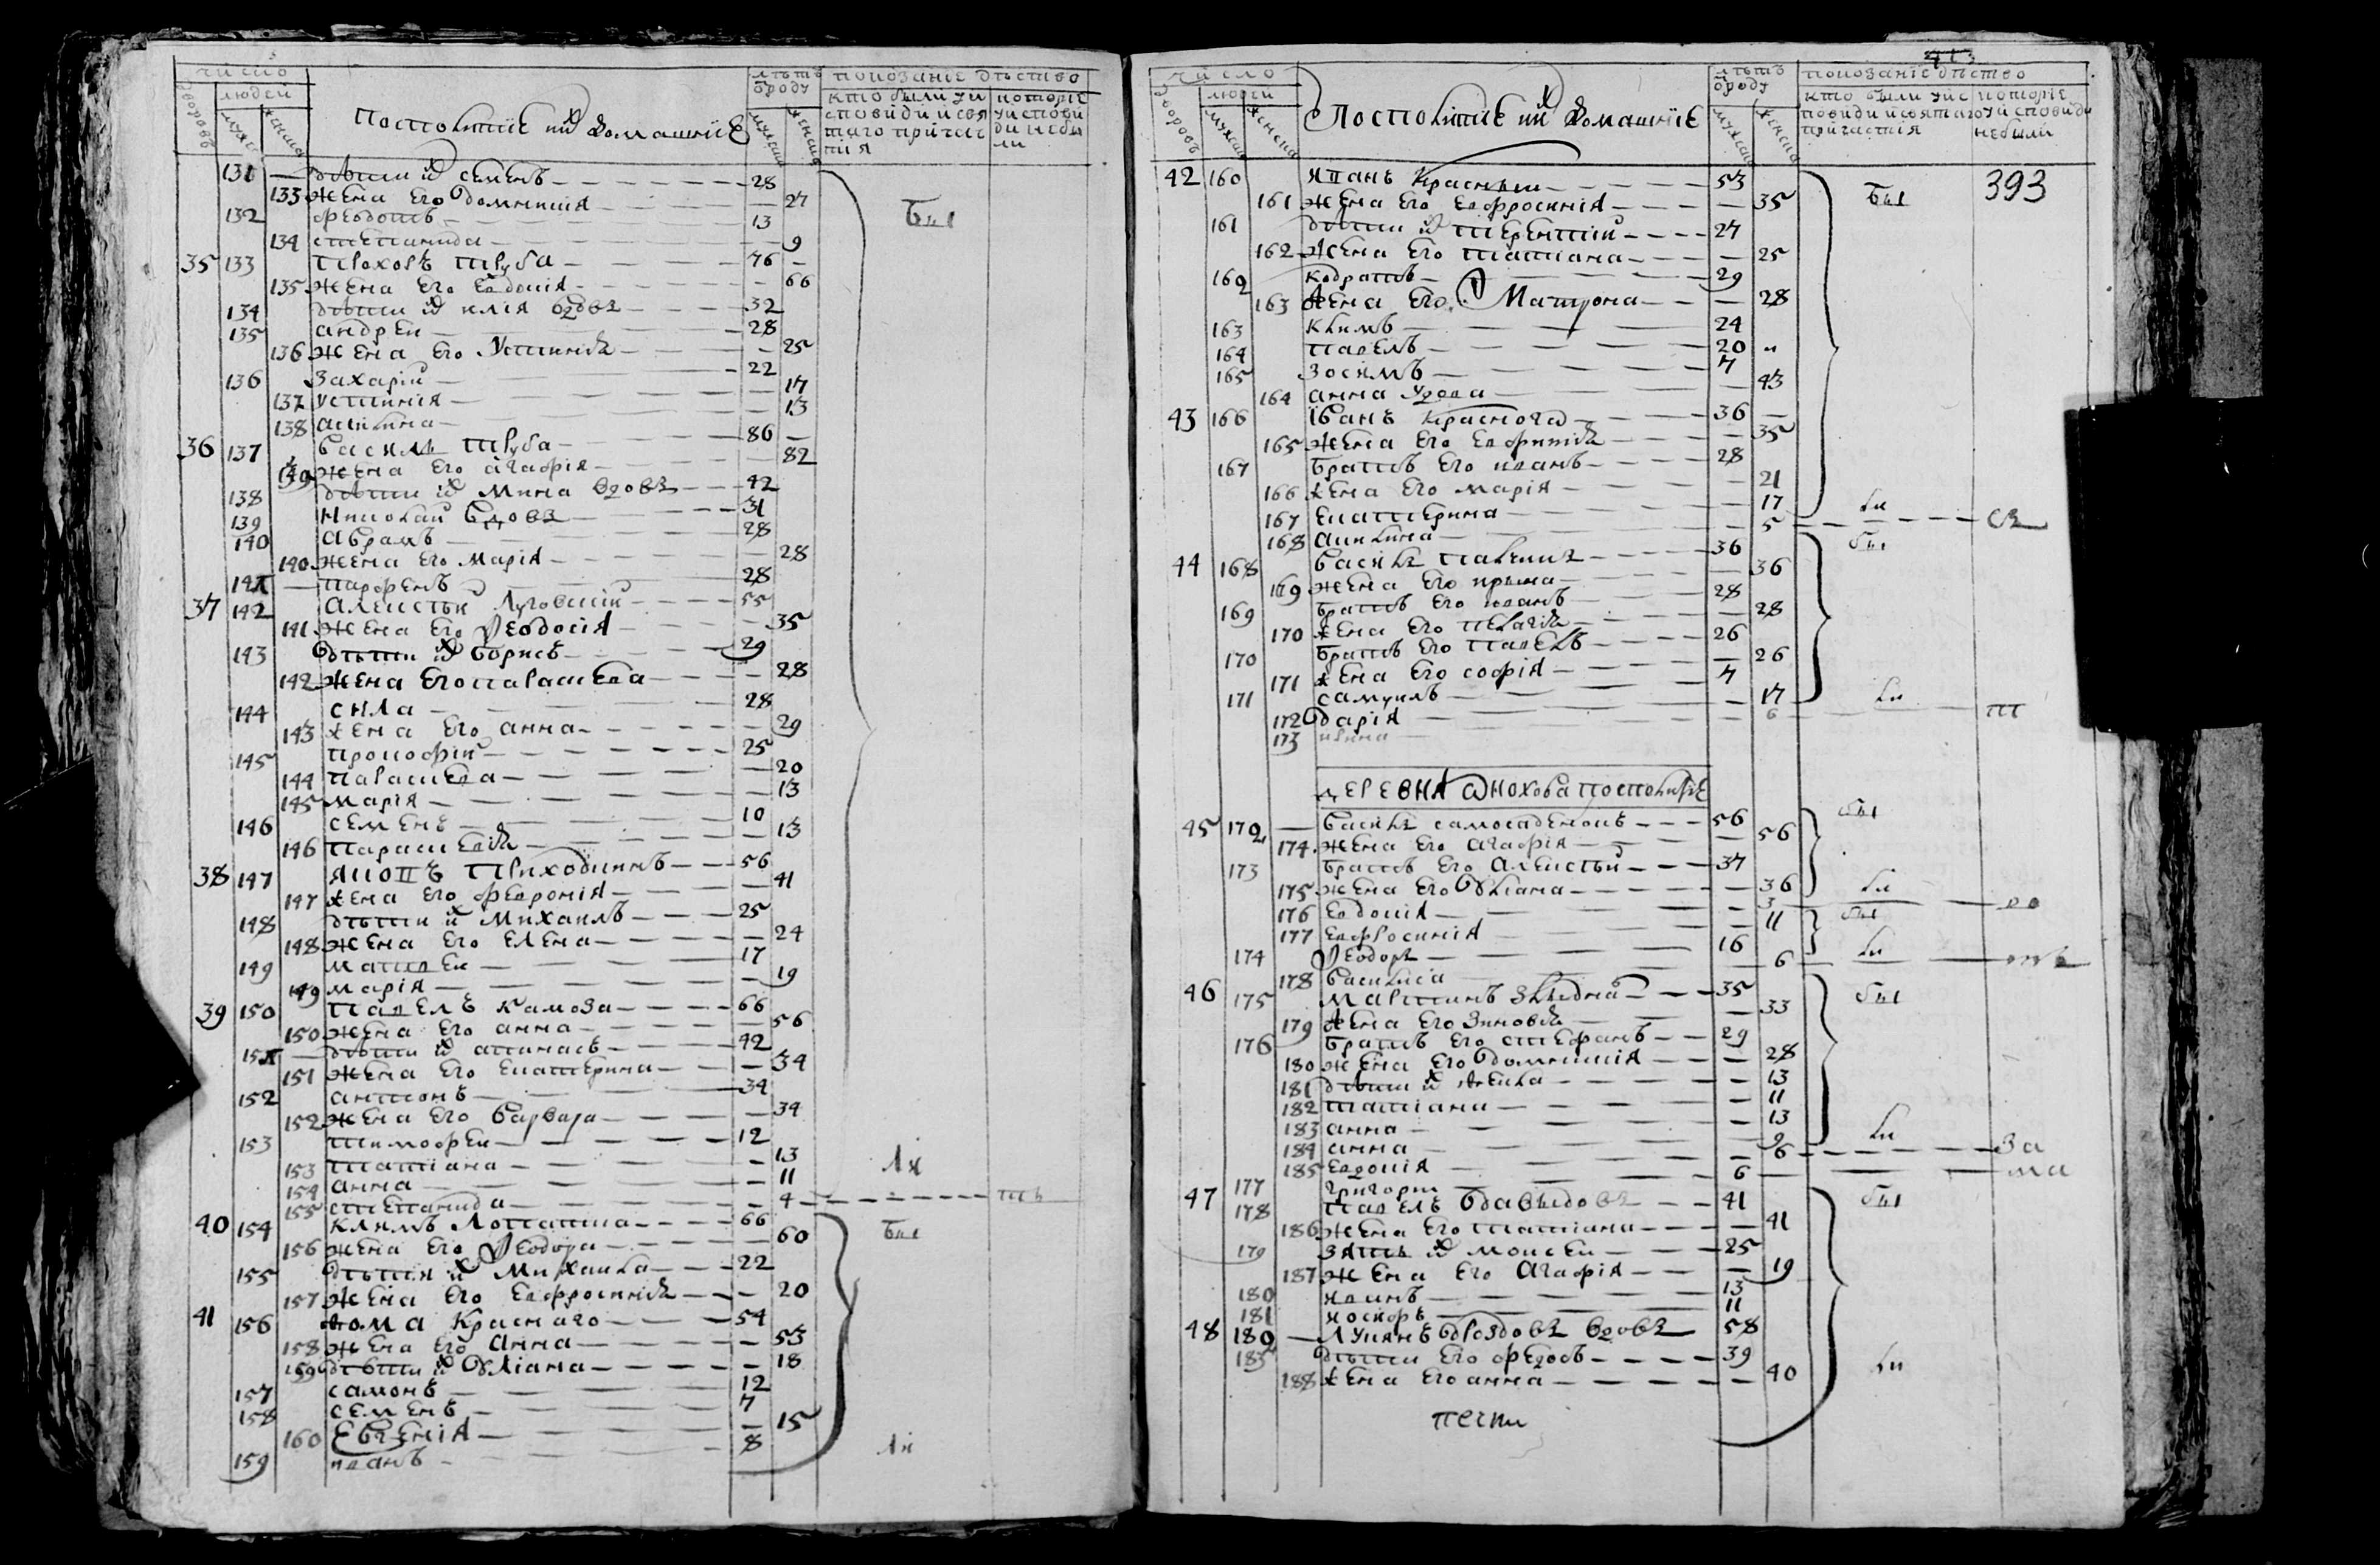 число
людей
дворовъ
мужеска
женска
Посполитие ихъ домашние
лѣтъ
ѿ роду
мужеска
женска
показание дѣйство
кто были у ис
поведи и свя
таго причас
тия
которие
у испове
ди не бы
ли
131 — дѣти их семенъ 28
133 жена его домникия 27
132 феодотъ 13
134 степанида 9
35 133 Прохоръ труба 76
135 жена его евдокия 66
134 дѣти их илия вдовъ 32
135 андреи 28
136 жена его Устиния 25
136 Захарий 22
137 устиния 17
138 акилина 13
36 137 василь труба 86
139 жена его агафия 82
138 дѣти их мина вдовъ 42
139 николай вдовъ 31
140 абрамъ 28
140 жена его мария 28
141 — парфенъ 28
37 142 Алексѣй Луговский 55
141 жена его Феодосия 35
143 дѣти их борисъ 29
142 жена его парасковия 28
144 сила 28
143 жена его анна 29
145 прокофий 25
144 параскева 20
145 мария 13
146 семенъ 10
146 параскевия 13
38 147 якопъ приходкинъ 56
147 жена его феврония 41
148 дѣти их Михаилъ 25
148 жена его елена 24
149 матвеи 17
149 мария 19
39 150 павелъ камоза 66
150 жена его анна 56
151 — дѣти их атанасъ 42
151 жена его екатерина 34
152 антонъ 34
152 жена его варвара 34
153 тимофеи 12
153 татиана 13
154 анна 11
155 степанида 4
40 154 климъ лопатка 66
156 жена его Феодора 60
155 дѣти их Михаила 22
157 жена его евфросиния 20
41 156 фома красного 54
158 жена его анна 53
159 дѣти их улиана 18
157 самонъ 12
158 семенъ 7
160 евгения 15
159 иванъ 8
Бы
ли
Бы
ли
число
людей
дворовъ
мужеска
женска
Посполитие ихъ домашние
лѣтъ
ѿ роду
мужеска
женска
показание дѣйство
кто были у ис
поведи и святаго
причастия
которие
у исповеди
небыли
393
42 160 Япанъ красный 53
161 жена его евфросиния 35
161 дѣти их терентий 27
162 жена его татиана 25
162 кодратъ 29
163 жена его Матрона 28
163 климъ 24
164 павелъ 20
165 зосимъ 7
164 анна удова 43
43 166 Иванъ красного 36
165 жена его 35
167 братъ его иванъ 28
166 жена его мария 21
167 екатерина 17
168 акилина 5
44 168 василь 36
169 жена его ирина 36
169 братъ его иванъ 28
170 жена его пелагия 28
170 братъ его павелъ 26
171 жена его софия 26
171 самуилъ 7
172 дария 17
173 6
деревня анохова посполитие
45 172 — василь самосаденокъ 56
174 жена его агафия 56
173 братъ его алексѣй 37
175 жена его улиана 36
176 евдокия 3
177 евфросиния 11
174 Феодоръ 16
178 василиса 6
46 175 мартинъ 35
179 жена его зиновия 33
176 братъ его стефанъ 29
180 жена его домникия 28
181 дѣти их 13
182 татиана 11
183 анна 13
184 анна 9
185 евдокия 6
177 григории 6
47 178 павелъ давыдовъ 41
186 жена его татиана 41
179 зять их моисеи 25
187 жена его агафия 19
180 иванъ 13
181 11
48 182 — лукянъ дроздовъ вдовъ 58
183 дѣти его федосъ 39
188 жена его анна 40
Бы
ли
Бы
ли
Бы
ли
Бы
ли
Бы
ли
Бы
ли